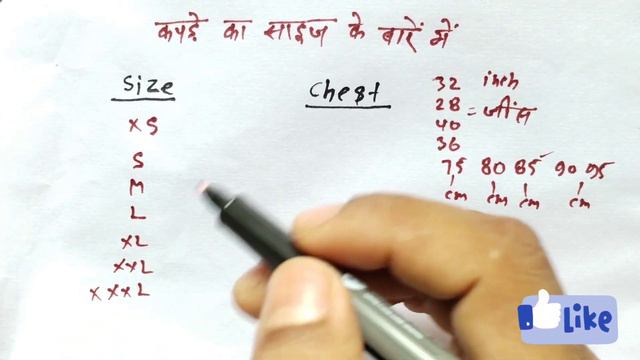 कपड़े का साइज के बारें में
Size
Chest
XS
S
M
L
XL
XXL
XXXL
32 inch
28 = जींस
40
36
75 80 85 90 95
cm cm cm cm
Like